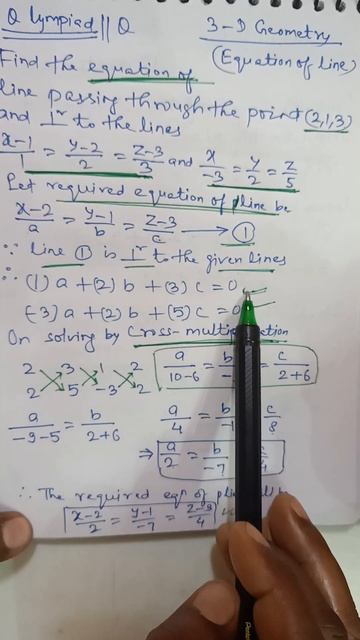 Q Lympiad || Q 3-D Geometry
(Equation of line)
Find the equation of
line passing through the point (2,1,3)
and ⊥r to the lines
x-1/1 = y-2/2 = z-3/3 and x/-3 = y/2 = z/5
Let required equation of line be
x-2/a = y-1/b = z-3/c → ①
∵ line ① is ⊥r to the given lines
∴ (1) a + (2) b + (3) c = 0
(-3) a + (2) b + (5) c = 0
On solving by Cross-multiplication
2 3 1 2
2 5 -3 2
a/10-6 = b/ = c/2+6
a/-9-5 = b/2+6
a/4 = b/-1 c/8
⇒ a/2 = b/-7 4
∴ The required eqn of line will be
x-2/2 = y-1/-7 = z-3/4